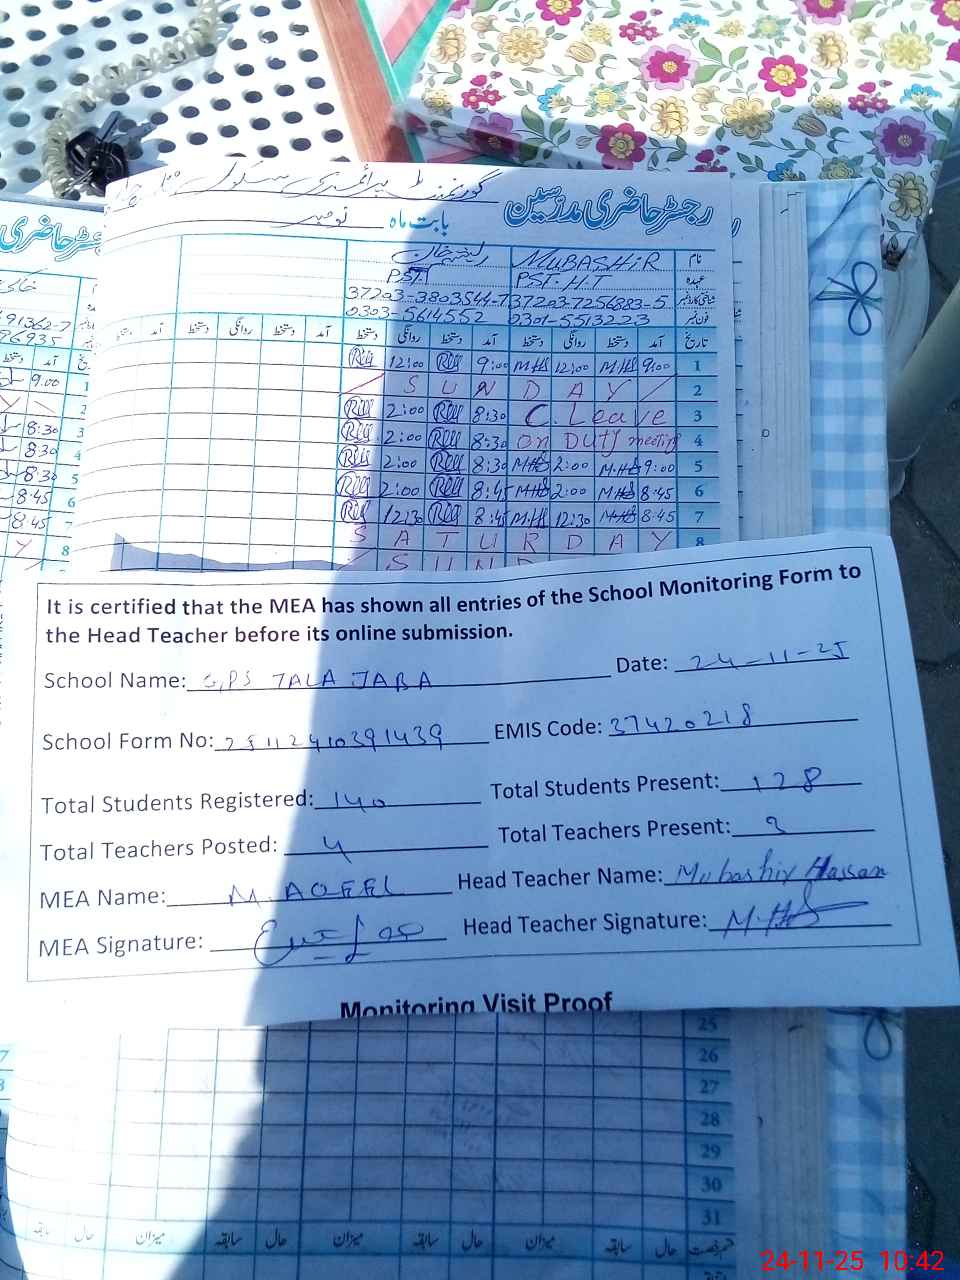 گورنمنٹ پرائمری سکول
رجسٹر حاضری مدرسین بابت ماہ نومبر
نام MUBASHIR
عہدہ PST.H.T PST
شناختی کارڈ نمبر 37203-7256883-5 37203-3803544-7
فون نمبر 0301-5513223 0303-5614552
تاریخ آمد دستخط روانگی دستخط آمد دستخط روانگی دستخط آمد دستخط روانگی دستخط آمد
1 9:00 M.HS 12:00 M.HS 9:00 12:00
2 S U N D A Y
3 C. Leave 8:30 2:00
4 on Duty meeting 8:30 2:00
5 9:00 M.HS 2:00 M.HS 8:30 2:00
6 8:45 M.HS 2:00 M.HS 8:45 2:00
7 8:45 M.HS 12:30 M.HS 8:45 12:30
8 S A T U R D A Y
S U N D
رجسٹر حاضری
91362-7
76935
آمد
9.00 1
2
8:30 3
8:30 4
8:30 5
8:45 6
8:45 7
Y 8
It is certified that the MEA has shown all entries of the School Monitoring Form to
the Head Teacher before its online submission.
School Name: GPS JALA JABA Date: 24-11-25
School Form No: 25112410391439 EMIS Code: 37420218
Total Students Registered: 140 Total Students Present: 128
Total Teachers Posted: 4 Total Teachers Present: 3
MEA Name: M. AQEEL Head Teacher Name: Mubashir Hassan
MEA Signature: Head Teacher Signature: M.HS
Monitoring Visit Proof
25
26
27
28
29
30
31
حال سابقہ میزان حال سابقہ میزان حال سابقہ میزان حال سابقہ
24-11-25 10:42